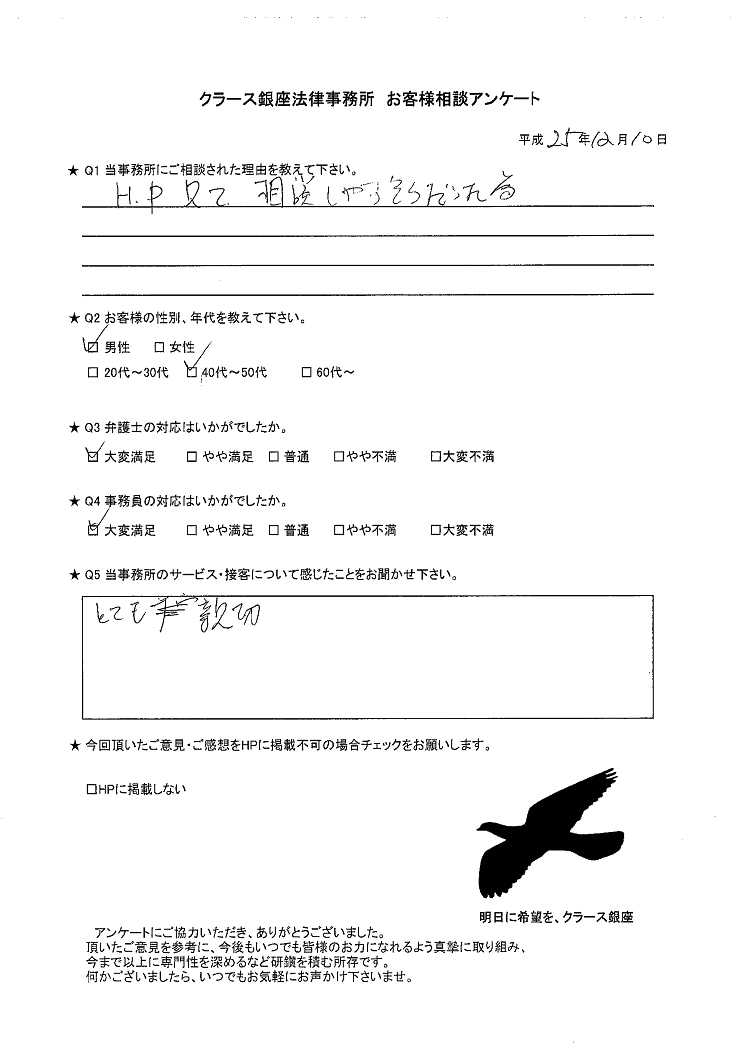 クラース銀座法律事務所 お客様相談アンケート
平成 25年12月10日
★ Q1 当事務所にご相談された理由を教えて下さい。
H.P見て 相談しやすそうだった為
★ Q2 お客様の性別、年代を教えて下さい。
☑ 男性 □ 女性
□ 20代～30代 ☑ 40代～50代 □ 60代～
★ Q3 弁護士の対応はいかがでしたか。
☑ 大変満足 □ やや満足 □ 普通 □やや不満 □大変不満
★ Q4 事務員の対応はいかがでしたか。
☑ 大変満足 □ やや満足 □ 普通 □やや不満 □大変不満
★ Q5 当事務所のサービス・接客について感じたことをお聞かせ下さい。
とても 親切
★ 今回頂いたご意見・ご感想をHPに掲載不可の場合チェックをお願いします。
□HPに掲載しない
明日に希望を、クラース銀座
アンケートにご協力いただき、ありがとうございました。
頂いたご意見を参考に、今後もいつでも皆様のお力になれるよう真摯に取り組み、
今まで以上に専門性を深めるなど研鑽を積む所存です。
何かございましたら、いつでもお気軽にお声かけ下さいませ。